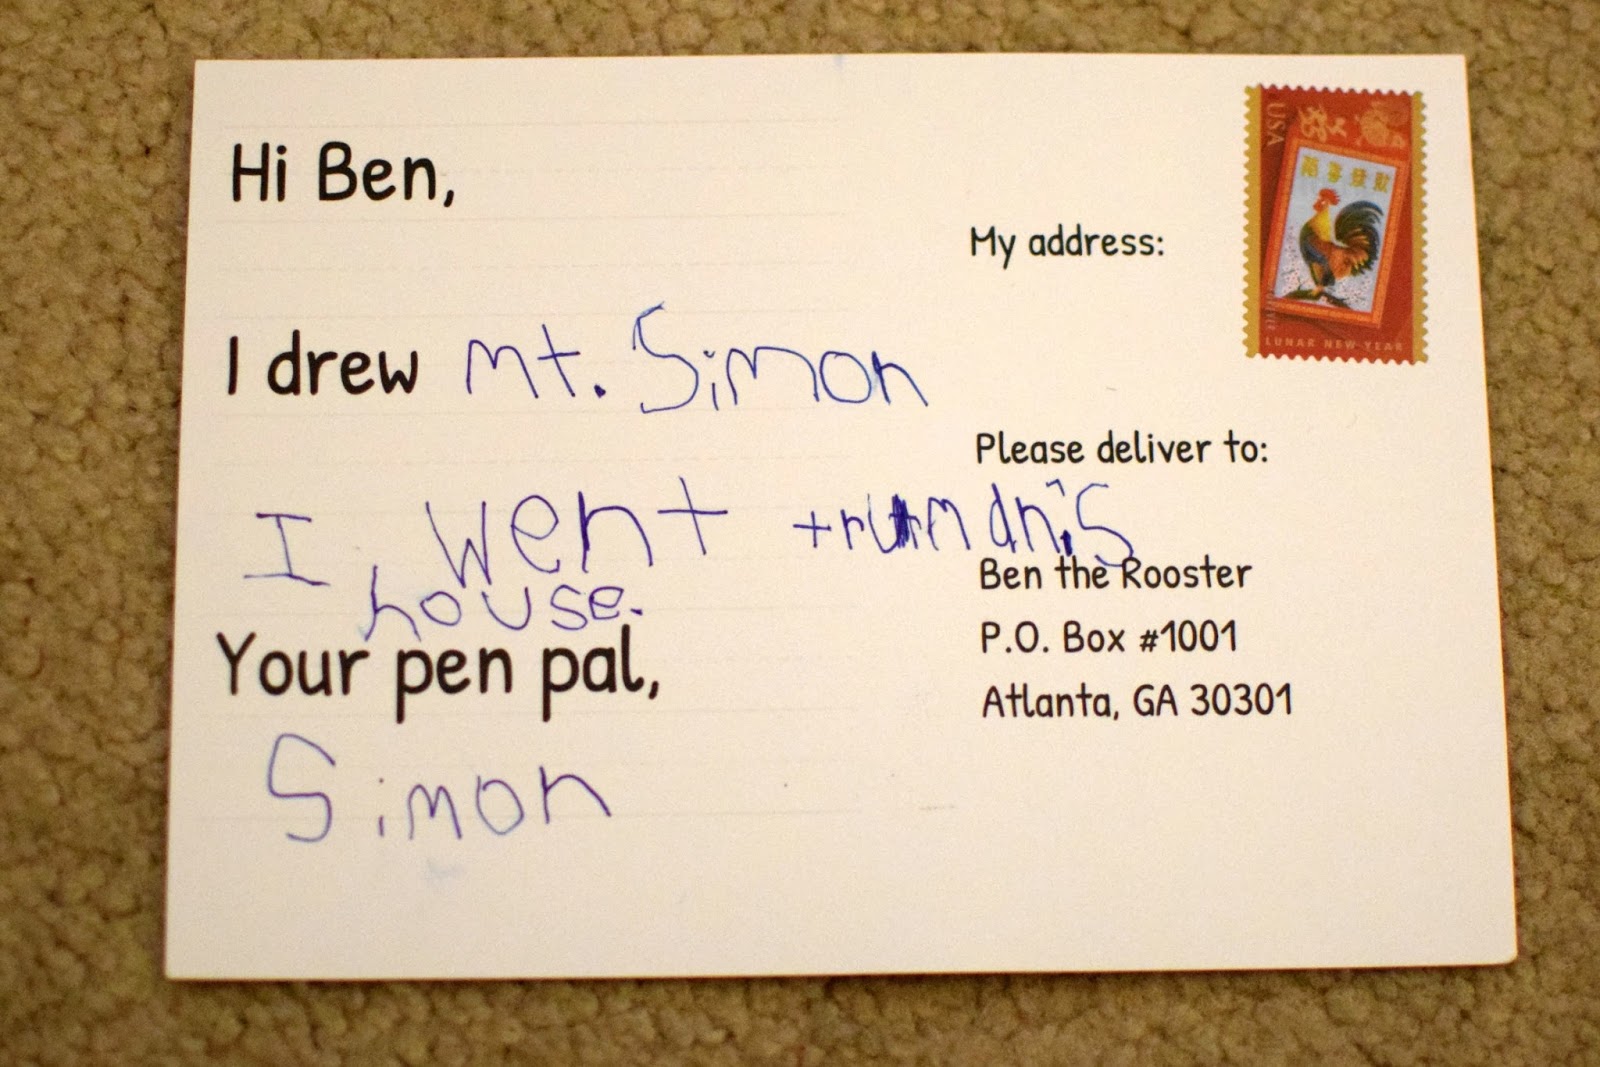 Hi Ben,
I drew mt. Simon
I went truman's
house.
Your pen pal,
Simon
USA
LUNAR NEW YEAR
My address:
Please deliver to:
Ben the Rooster
P.O. Box #1001
Atlanta, GA 30301